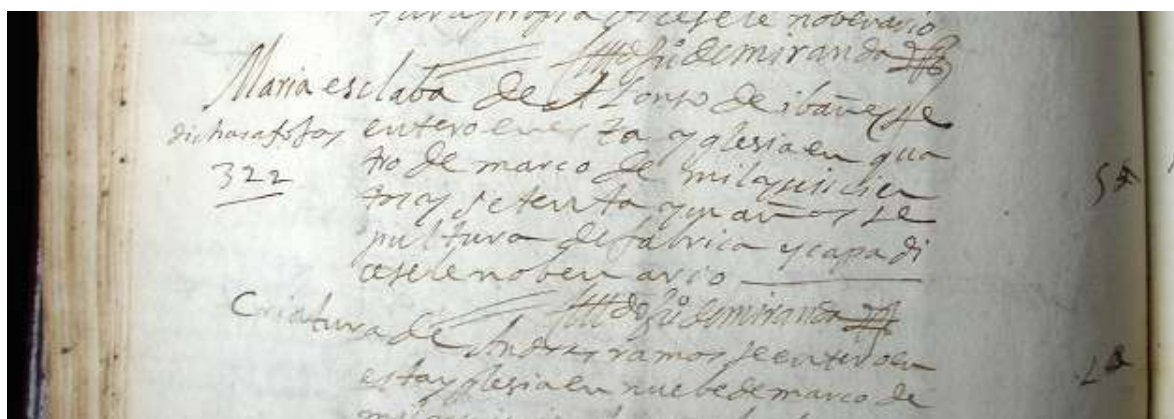 tura propia dicesele nobenario
Juº de miranda
Maria esclaba de Alonso de ibañes se
dichasafosoy
322
entero en esta yglesia en qua
tro de março de mil y quinien
tos y setenta y un años se
pultura de fabrica y capa di
cesele nobenario
Juº de miranda
Criatura de Andres ramos se entero en
esta yglesia en nuebe de março de